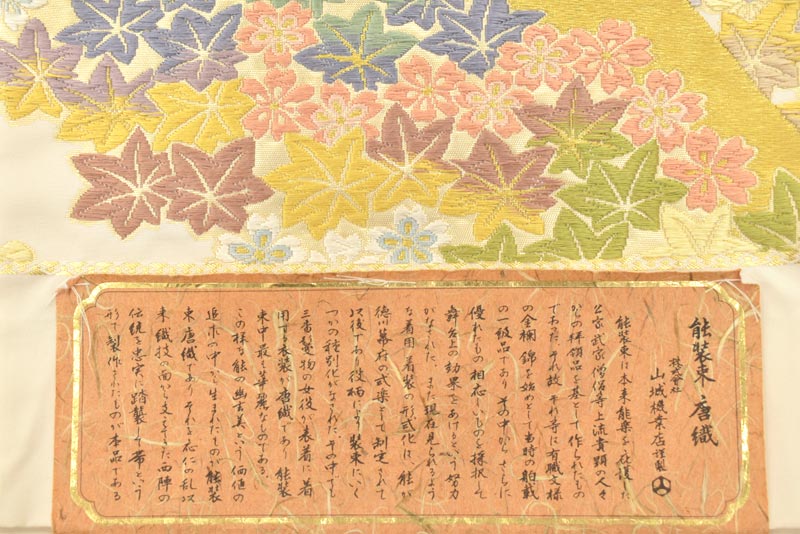 能装束 唐織
株式會社
山城機業店謹製
能装束は本来能楽を庇護した
公家武家僧侶等上流貴顕の人々
からの拝領品を基として作られたもの
であった それ故 それ等は有職文様
の金襴 錦を始めとして当時の舶載
の一級品であり その中から さらに
優れたもの 相応しいものを択択し
舞台上の効果をあげるという努力
がなされた また現在見られるよう
な着用 着装の形式化は 能が
徳川幕府の式楽として制定されて
以後であり役柄により 装束にいく
つかの種別化がなされた その中でも
三番鬘物の女役が表着に着
用する衣装が唐織であり 能装
束中最も華麗なものである
この様な能の幽玄美という価値の
追求の中で生まれたものが能装
束唐織であり それを応仁の乱以
来 織技の面から支えてきた西陣の
伝統を忠実に踏襲し 帯という
形で製作されたものが本品である